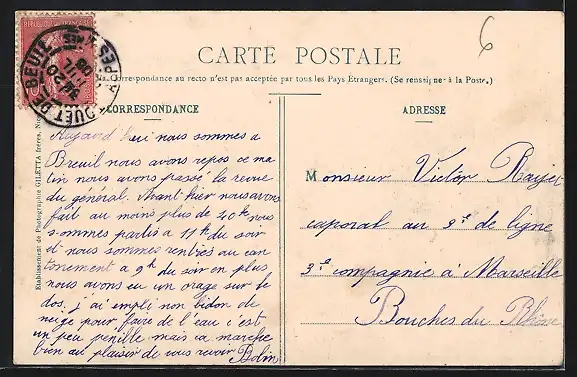 CARTE POSTALE
La Correspondance au recto n'est pas acceptée par tous les Pays Étrangers. (Se renseigner à la Poste.)
CORRESPONDANCE
Aujourd hui nous sommes a
Breuil nous avons repos ce ma
tin nous avons passé la revue
du général. Avant hier nous avons
fait au moins plus de 40 k nous
sommes partis a 11 h du soir
et nous sommes rentrés au can
tonement a 9h du soir en plus
nous avons eu un orage sur le
dos. j'ai empli non bidon de
neige pour faire de l'eau c'est
un peu penible mais sa marche
bien au plaisir de vous revoir Bolin
ADRESSE
Monsieur Victor
caporal au 9e de ligne
3e compagnie à Marseille
Bouches du Rhône
Établissement de Photographie GILETTA frères, Nice
6